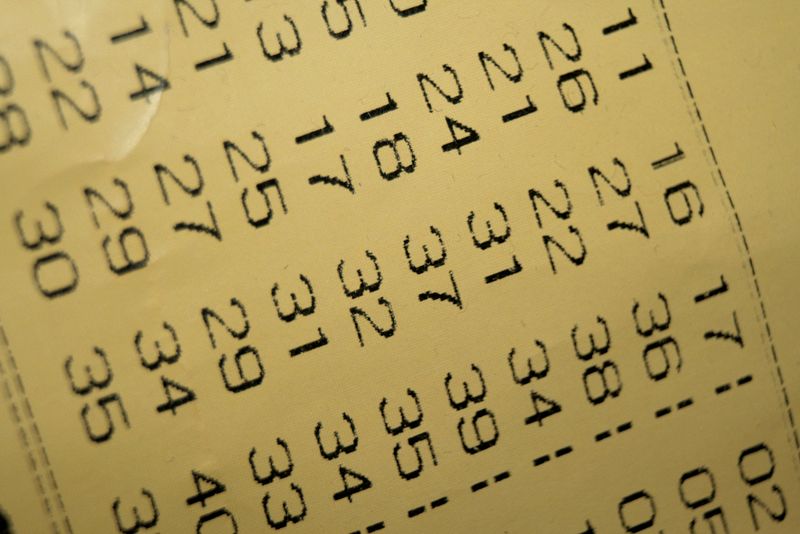 11 16 17 - 02
26 27 36 - 05
21 22 38 - 0
24 31 34 -
5 18 37 39 -
3 17 32 35 -
21 25 31 34 -
14 27 29 33
22 29 34 40
28 30 35 3